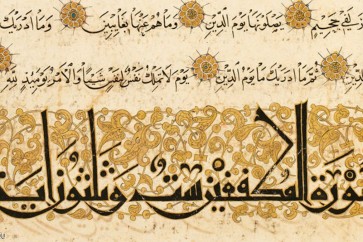 لفي جحيم يصلونها يوم الدين وما هم عنها بغائبين وما ادريك
ثم ما ادريك ما يوم الدين يوم لا تملك نفس لنفس شيئا والأمر يومئذ لله
سورة المطففين ست وثلثون اية